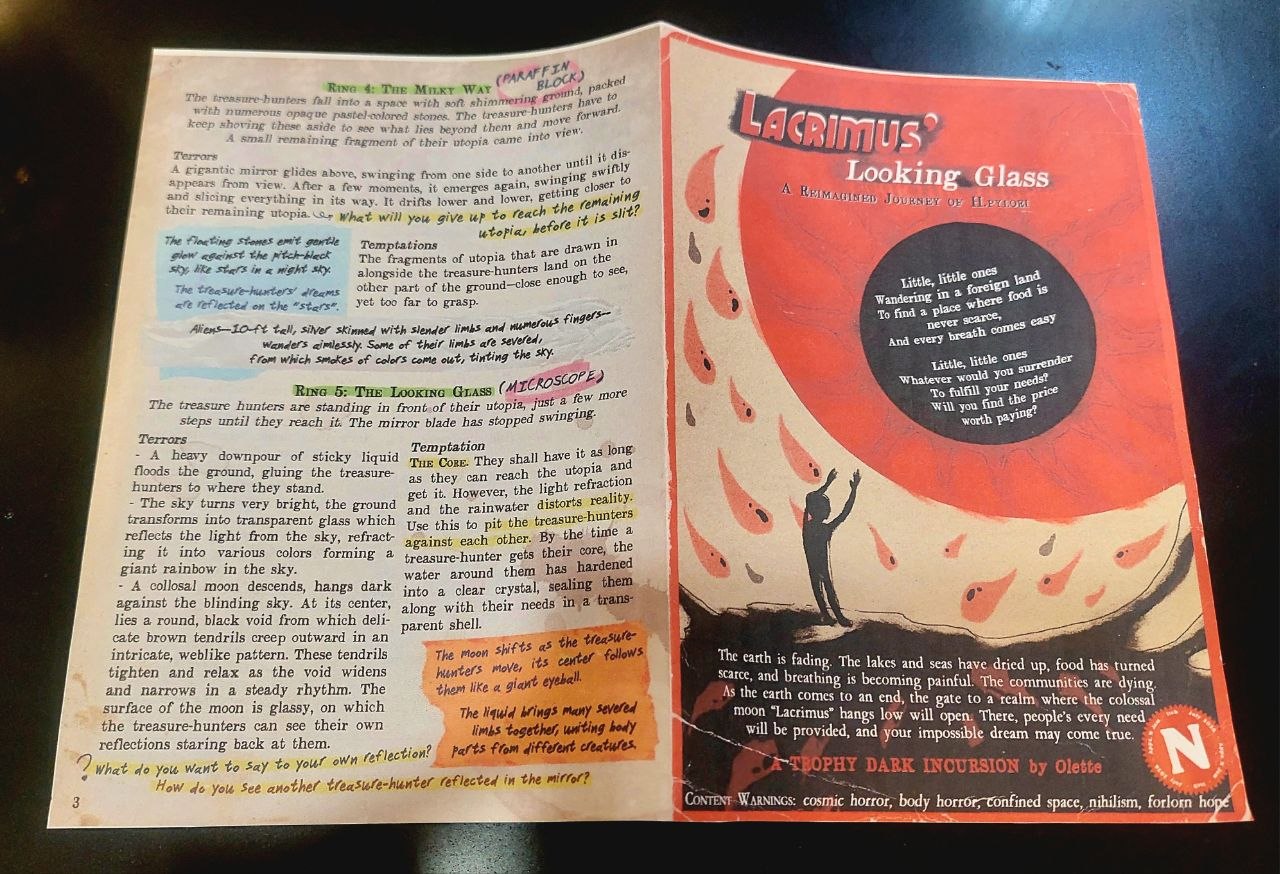 RING 4: THE MILKY WAY (PARAFFIN BLOCK)
The treasure-hunters fall into a space with soft shimmering ground, packed
with numerous opaque pastel-colored stones. The treasure-hunters have to
keep shoving these aside to see what lies beyond them and move forward.
A small remaining fragment of their utopia came into view.
Terrors
A gigantic mirror glides above, swinging from one side to another until it dis-
appears from view. After a few moments, it emerges again, swinging swiftly
and slicing everything in its way. It drifts lower and lower, getting closer to
their remaining utopia. What will you give up to reach the remaining
utopia, before it is slit?
The floating stones emit gentle
glow against the pitch-black
sky, like stars in a night sky.
The treasure-hunters' dreams
are reflected on the "stars".
Temptations
The fragments of utopia that are drawn in
alongside the treasure-hunters land on the
other part of the ground—close enough to see,
yet too far to grasp.
Aliens—10-ft tall, silver skinned with slender limbs and numerous fingers—
wanders aimlessly. Some of their limbs are severed,
from which smokes of colors come out, tinting the sky.
RING 5: THE LOOKING GLASS (MICROSCOPE)
The treasure hunters are standing in front of their utopia, just a few more
steps until they reach it. The mirror blade has stopped swinging.
Terrors
- A heavy downpour of sticky liquid
floods the ground, gluing the treasure-
hunters to where they stand.
- The sky turns very bright, the ground
transforms into transparent glass which
reflects the light from the sky, refract-
ing it into various colors forming a
giant rainbow in the sky.
- A collosal moon descends, hangs dark
against the blinding sky. At its center,
lies a round, black void from which deli-
cate brown tendrils creep outward in an
intricate, weblike pattern. These tendrils
tighten and relax as the void widens
and narrows in a steady rhythm. The
surface of the moon is glassy, on which
the treasure-hunters can see their own
reflections staring back at them.
Temptation
THE CORE. They shall have it as long
as they can reach the utopia and
get it. However, the light refraction
and the rainwater distorts reality.
Use this to pit the treasure-hunters
against each other. By the time a
treasure-hunter gets their core, the
water around them has hardened
into a clear crystal, sealing them
along with their needs in a trans-
parent shell.
The moon shifts as the treasure-
hunters move, its center follows
them like a giant eyeball.
The liquid brings many severed
limbs together, uniting body
parts from different creatures.
? What do you want to say to your own reflection?
How do you see another treasure-hunter reflected in the mirror?
3
LACRIMUS'
Looking Glass
A REIMAGINED JOURNEY OF H.PYLORI
Little, little ones
Wandering in a foreign land
To find a place where food is
never scarce,
And every breath comes easy
Little, little ones
Whatever would you surrender
To fulfill your needs?
Will you find the price
worth paying?
The earth is fading. The lakes and seas have dried up, food has turned
scarce, and breathing is becoming painful. The communities are dying.
As the earth comes to an end, the gate to a realm where the colossal
moon "Lacrimus" hangs low will open. There, people's every need
will be provided, and your impossible dream may come true.
A TROPHY DARK INCURSION by Olette
N
CONTENT WARNINGS: cosmic horror, body horror, confined space, nihilism, forlorn hope